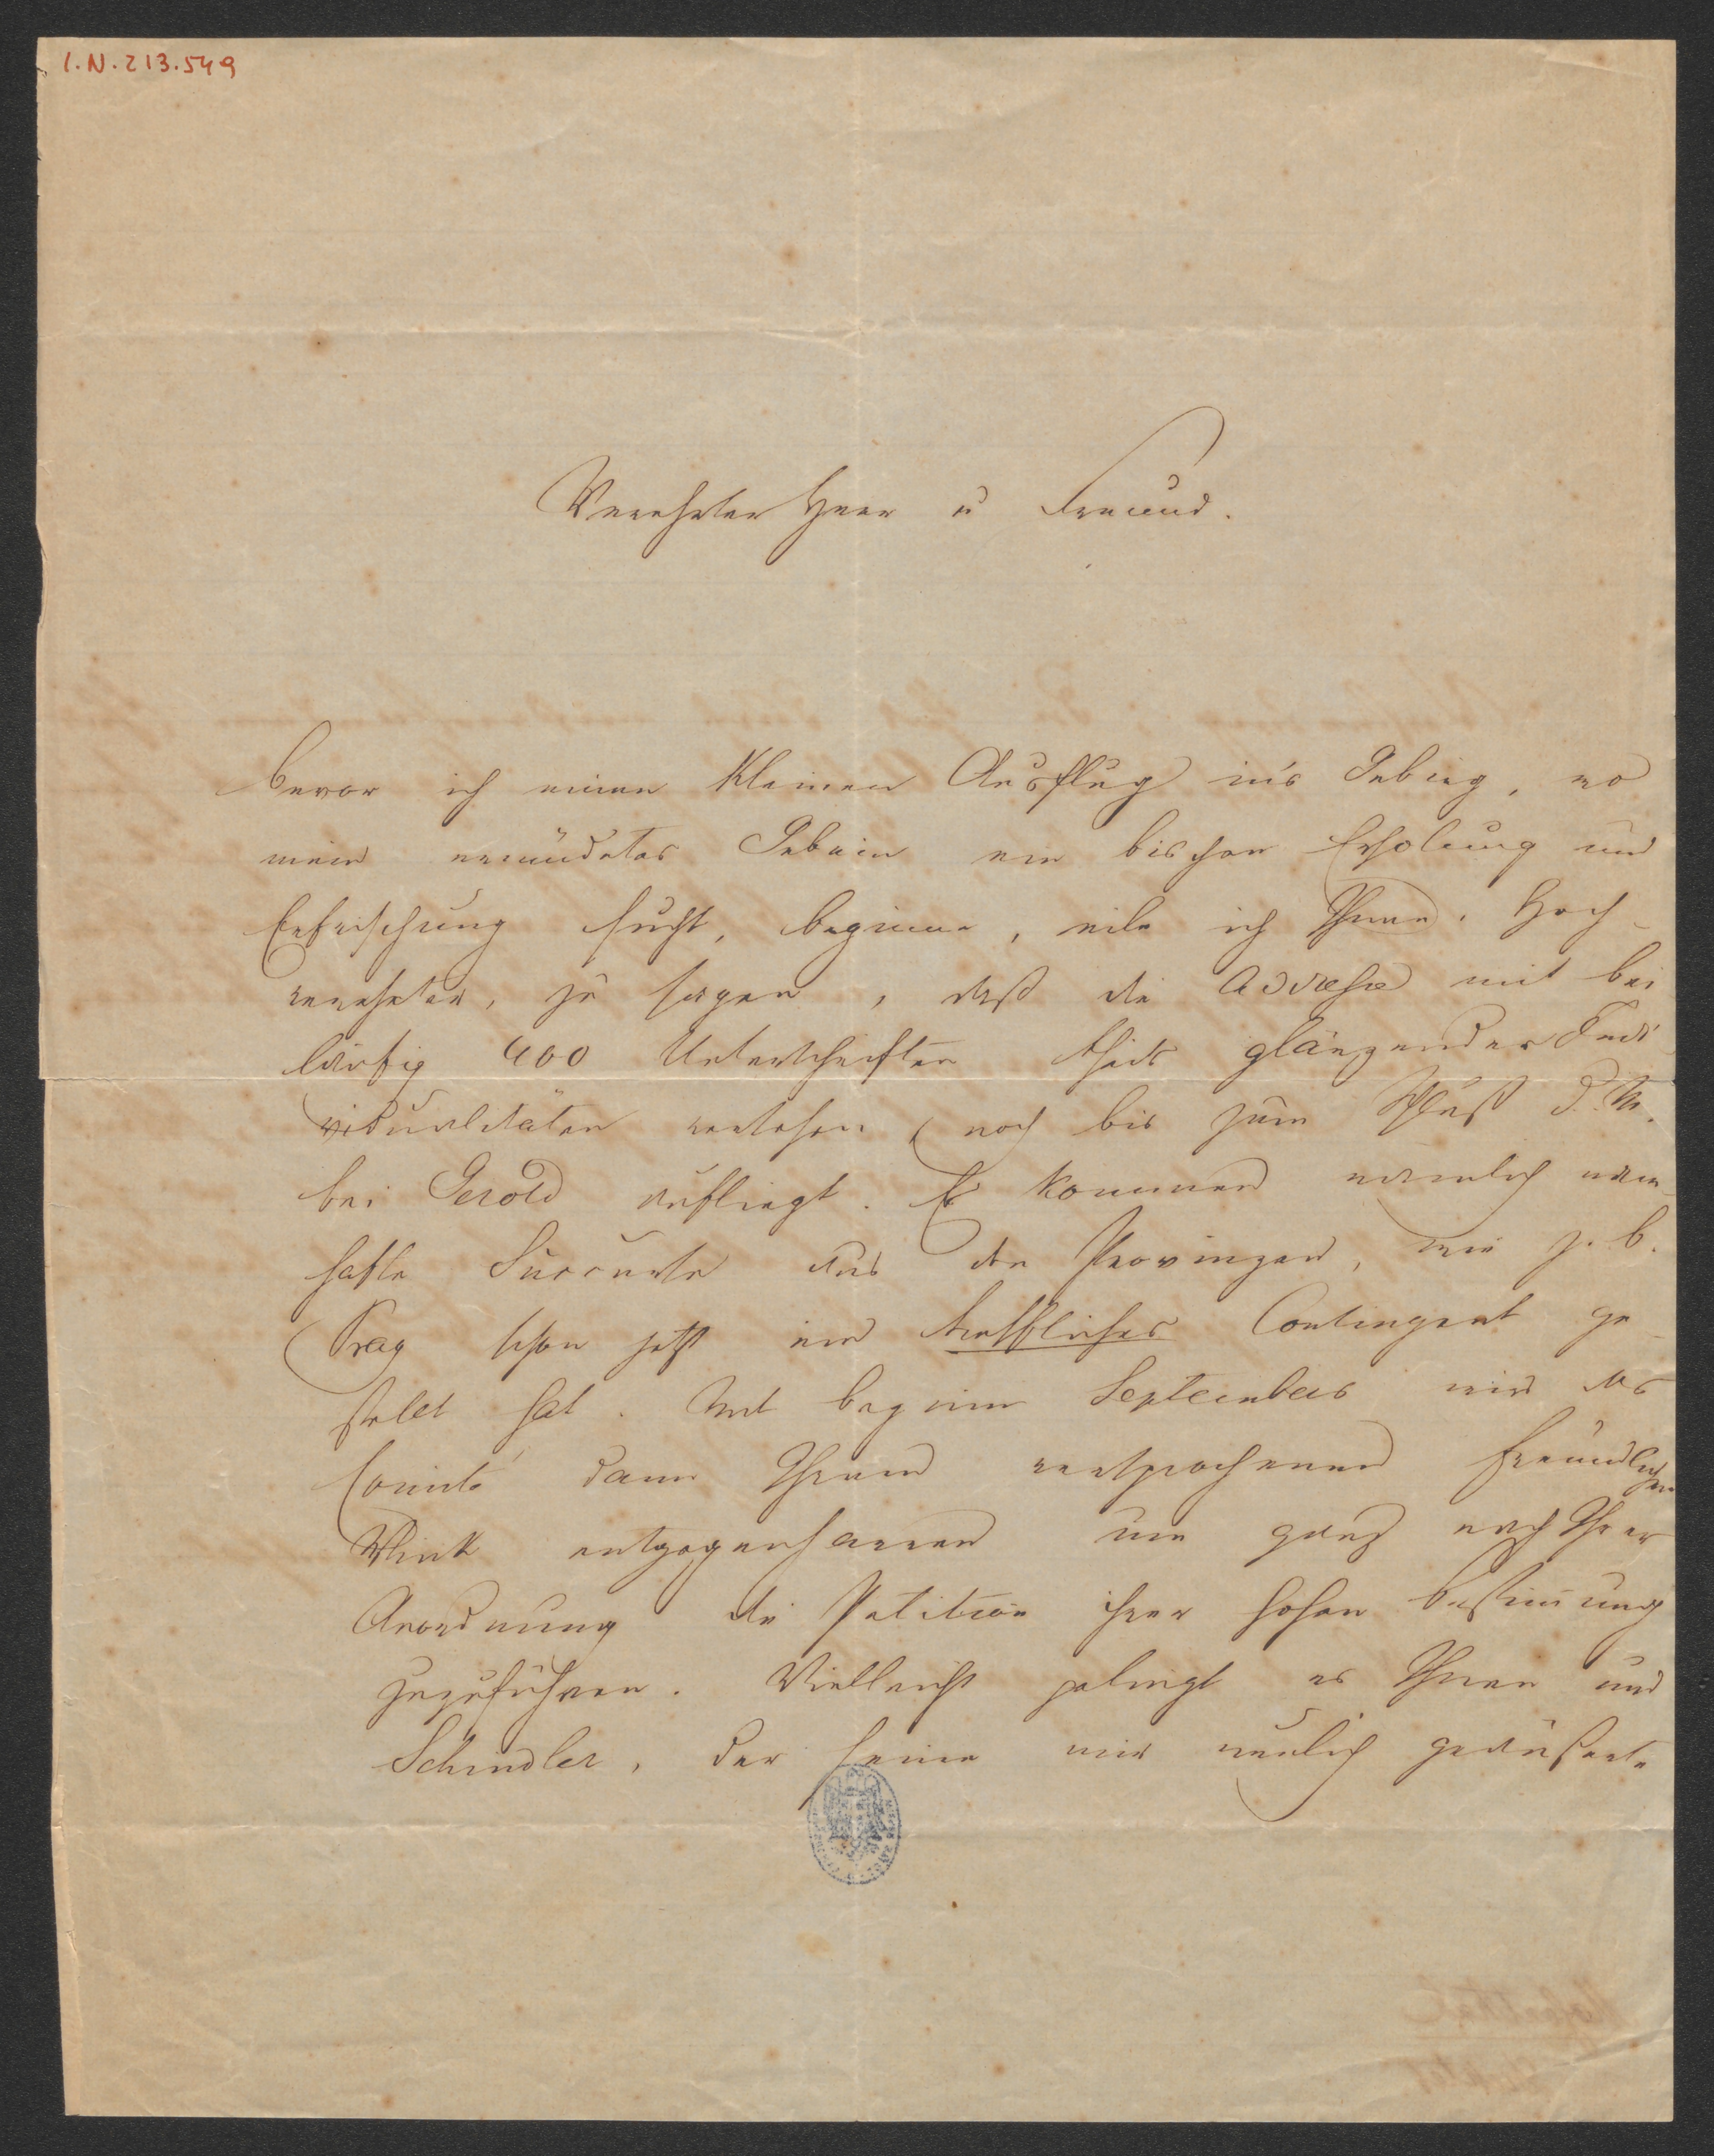 I.N. 213.549
Verehrter Herr u Freund.
bevor ich einen kleinen Ausflug in's Gebirg, wo
mein ermüdetes Gebein ein bischen Erholung und
Erfrischung sucht, beginne, eile ich Ihnen, Hoch-
verehrter, zu sagen, daß die Addresse mit bei
läufig 400 Unterschriften theils glänzender Indi
vidualitäten versehen noch bis zum Schluß d. M.
bei Gerold aufliegt. Es kommen nämlich nam-
hafte Succurse aus den Provinzen, wie z. b.
Prag schon jetzt ein treffliches Contingent ge-
stellt hat. Mit beginn Septembers wird das
Comité dann Ihrem versprochenen freundlichen
Wink entgegenharren um ganz nach Ihrer
Anordnung die Petition ihrer hohen bestimmung
zuzuführen. Vielleicht gelingt es Ihnen und
Schindler, der seine mir neulich geäußerte